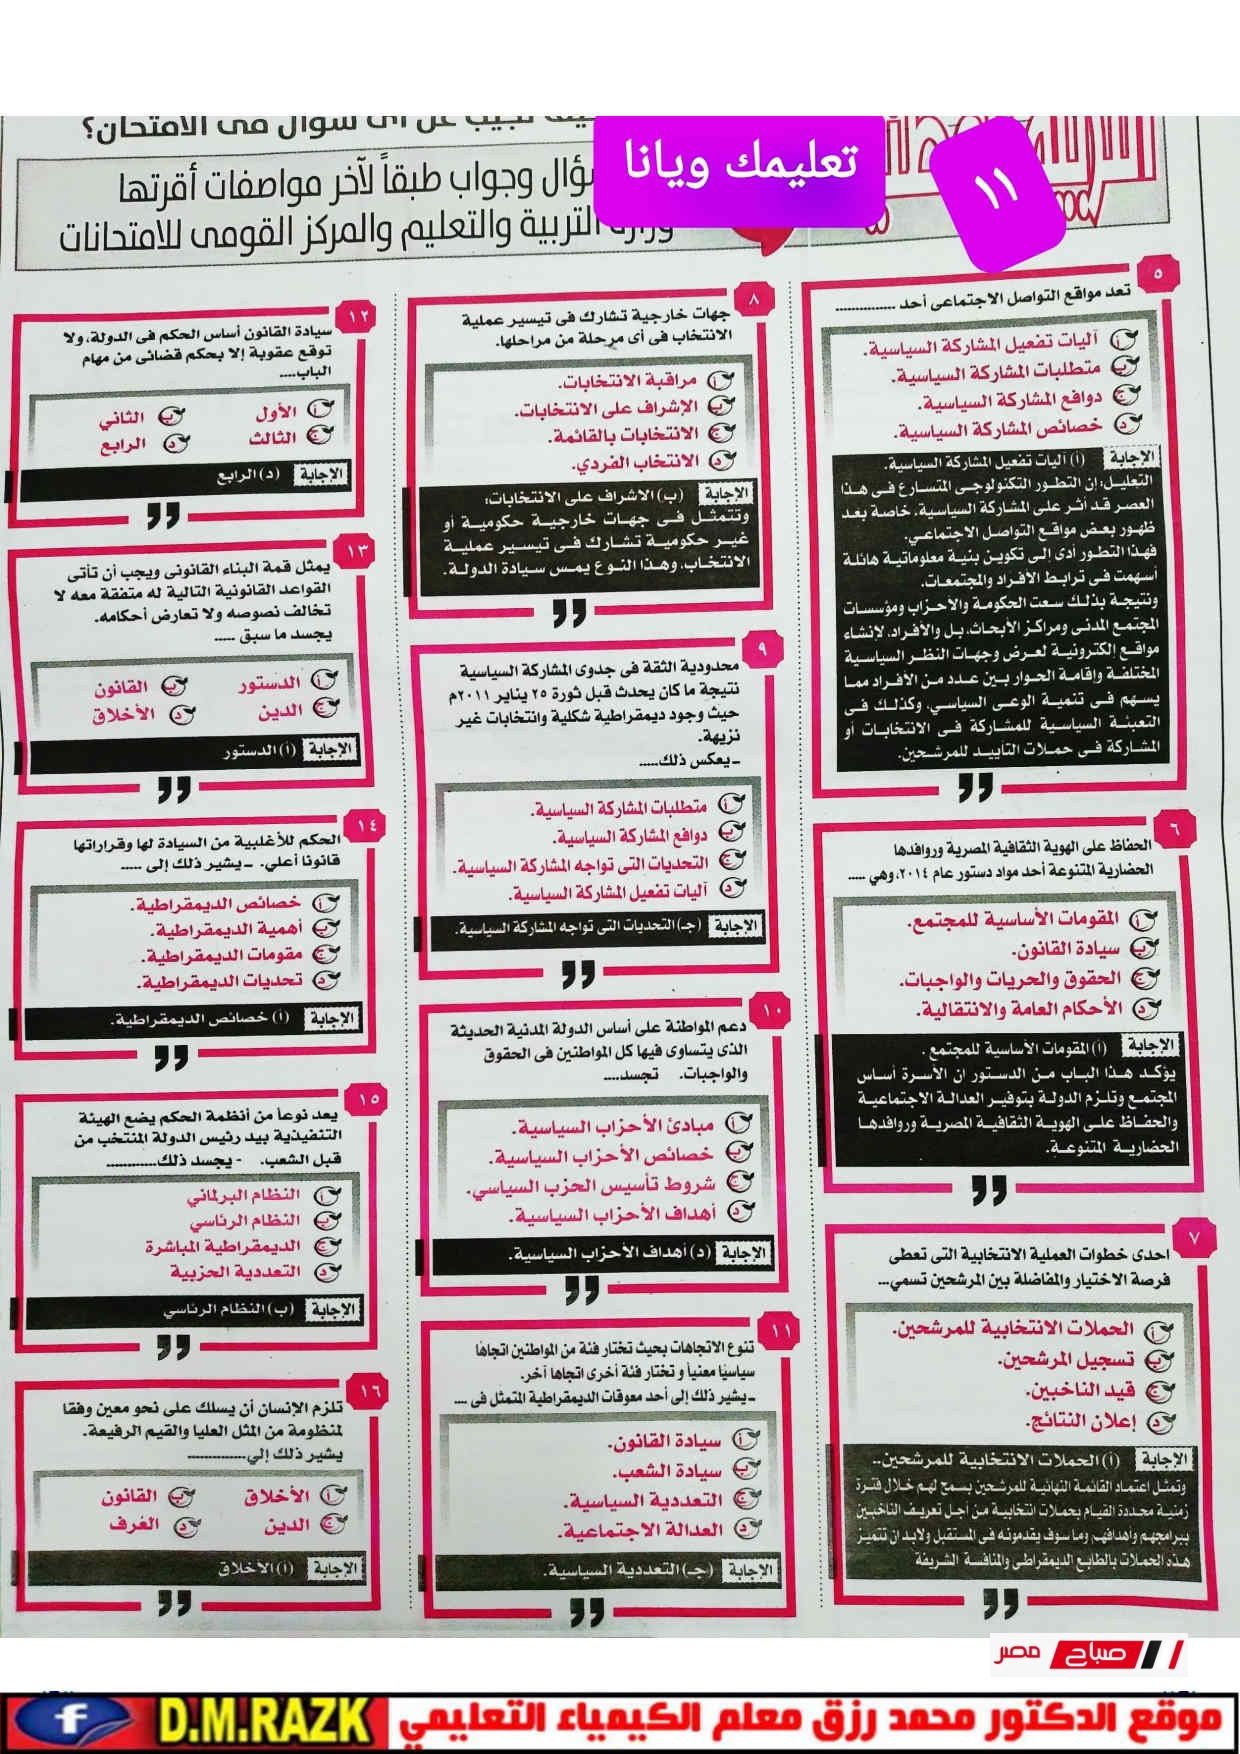 تعليمك ويانا
١١
سؤال وجواب طبقاً لآخر مواصفات أقرتها
وزارة التربية والتعليم والمركز القومى للامتحانات
٥
تعد مواقع التواصل الاجتماعى أحد ...............
أ آليات تفعيل المشاركة السياسية.
ب متطلبات المشاركة السياسية.
ج دوافع المشاركة السياسية.
د خصائص المشاركة السياسية.
الإجابة (أ) آليات تفعيل المشاركة السياسية.
التعليل: إن التطور التكنولوجى المتسارع فى هذا
العصر قد أثر على المشاركة السياسية، خاصة بعد
ظهور بعض مواقع التواصل الاجتماعي.
فهذا التطور أدى إلى تكوين بنية معلوماتية هائلة
أسهمت فى ترابط الأفراد والمجتمعات.
ونتيجة بذلك سعت الحكومة والأحزاب ومؤسسات
المجتمع المدنى ومراكز الأبحاث، بل والأفراد، لإنشاء
مواقع إلكترونية لعرض وجهات النظر السياسية
المختلفة وإقامة الحوار بين عدد من الأفراد مما
يسهم فى تنمية الوعى السياسي، وكذلك فى
التعبئة السياسية للمشاركة فى الانتخابات أو
المشاركة فى حملات التأييد للمرشحين.
٦
الحفاظ على الهوية الثقافية المصرية وروافدها
الحضارية المتنوعة أحد مواد دستور عام ٢٠١٤، وهي .....
أ المقومات الأساسية للمجتمع.
ب سيادة القانون.
ج الحقوق والحريات والواجبات.
د الأحكام العامة والانتقالية.
الإجابة (أ) المقومات الأساسية للمجتمع .
يؤكد هذا الباب من الدستور ان الأسرة أساس
المجتمع وتلزم الدولة بتوفير العدالة الاجتماعية
والحفاظ على الهوية الثقافية المصرية وروافدها
الحضارية المتنوعة.
٧
احدى خطوات العملية الانتخابية التى تعطى
فرصة الاختيار والمفاضلة بين المرشحين تسمي...
أ الحملات الانتخابية للمرشحين.
ب تسجيل المرشحين.
ج قيد الناخبين.
د إعلان النتائج.
الإجابة (أ) الحملات الانتخابية للمرشحين..
وتمثل اعتماد القائمة النهائية للمرشحين يسمح لهم خلال فترة
زمنية محددة القيام بحملات انتخابية من أجل تعريف الناخبين
ببرامجهم وأهدافهم وما سوف يقدمونه فى المستقبل ولابد ان تتميز
هذه الحملات بالطابع الديمقراطى والمنافسة الشريفة
٨
جهات خارجية تشارك فى تيسير عملية
الانتخاب فى أى مرحلة من مراحلها.
أ مراقبة الانتخابات.
ب الإشراف على الانتخابات.
ج الانتخابات بالقائمة.
د الانتخاب الفردي.
الإجابة (ب) الاشراف على الانتخابات:
وتتمثل فى جهات خارجية حكومية أو
غير حكومية تشارك فى تيسير عملية
الانتخاب، وهذا النوع يمس سيادة الدولة.
٩
محدودية الثقة فى جدوى المشاركة السياسية
نتيجة ما كان يحدث قبل ثورة ٢٥ يناير ٢٠١١م
حيث وجود ديمقراطية شكلية وانتخابات غير
نزيهة.
ـ يعكس ذلك.....
أ متطلبات المشاركة السياسية.
ب دوافع المشاركة السياسية.
ج التحديات التى تواجه المشاركة السياسية.
د آليات تفعيل المشاركة السياسية.
الإجابة (جـ) التحديات التى تواجه المشاركة السياسية.
١٠
دعم المواطنة على أساس الدولة المدنية الحديثة
الذى يتساوى فيها كل المواطنين فى الحقوق
والواجبات. تجسد....
أ مبادئ الأحزاب السياسية.
ب خصائص الأحزاب السياسية.
ج شروط تأسيس الحزب السياسي.
د أهداف الأحزاب السياسية.
الإجابة (د) أهداف الأحزاب السياسية.
١١
تنوع الاتجاهات بحيث تختار فئة من المواطنين اتجاهًا
سياسيًا معنياً و تختار فئة أخرى اتجاهاً آخر.
ـ يشير ذلك إلى أحد معوقات الديمقراطية المتمثل فى ....
أ سيادة القانون.
ب سيادة الشعب.
ج التعددية السياسية.
د العدالة الاجتماعية.
الإجابة (جـ) التعددية السياسية.
١٢
سيادة القانون أساس الحكم فى الدولة، ولا
توقع عقوبة إلا بحكم قضائى من مهام
الباب....
أ الأول ب الثاني
ج الثالث د الرابع
الإجابة (د) الرابع
١٣
يمثل قمة البناء القانونى ويجب أن تأتى
القواعد القانونية التالية له متفقة معه لا
تخالف نصوصه ولا تعارض أحكامه.
يجسد ما سبق .....
أ الدستور ب القانون
ج الدين د الأخلاق
الإجابة (أ) الدستور
١٤
الحكم للأغلبية من السيادة لها وقراراتها
قانونا أعلي. ـ يشير ذلك إلى .....
أ خصائص الديمقراطية.
ب أهمية الديمقراطية.
ج مقومات الديمقراطية.
د تحديات الديمقراطية.
الإجابة (أ) خصائص الديمقراطية.
١٥
يعد نوعاً من أنظمة الحكم يضع الهيئة
التنفيذية بيد رئيس الدولة المنتخب من
قبل الشعب. - يجسد ذلك............
أ النظام البرلماني
ب النظام الرئاسي
ج الديمقراطية المباشرة
د التعددية الحزبية
الإجابة (ب) النظام الرئاسي
١٦
تلزم الإنسان أن يسلك على نحو معين وفقا
لمنظومة من المثل العليا والقيم الرفيعة.
يشير ذلك إلي..............
أ الأخلاق ب القانون
ج الدين د العرف
الإجابة (أ) الأخلاق
صباح مصر
موقع الدكتور محمد رزق معلم الكيمياء التعليمي D.M.RAZK f